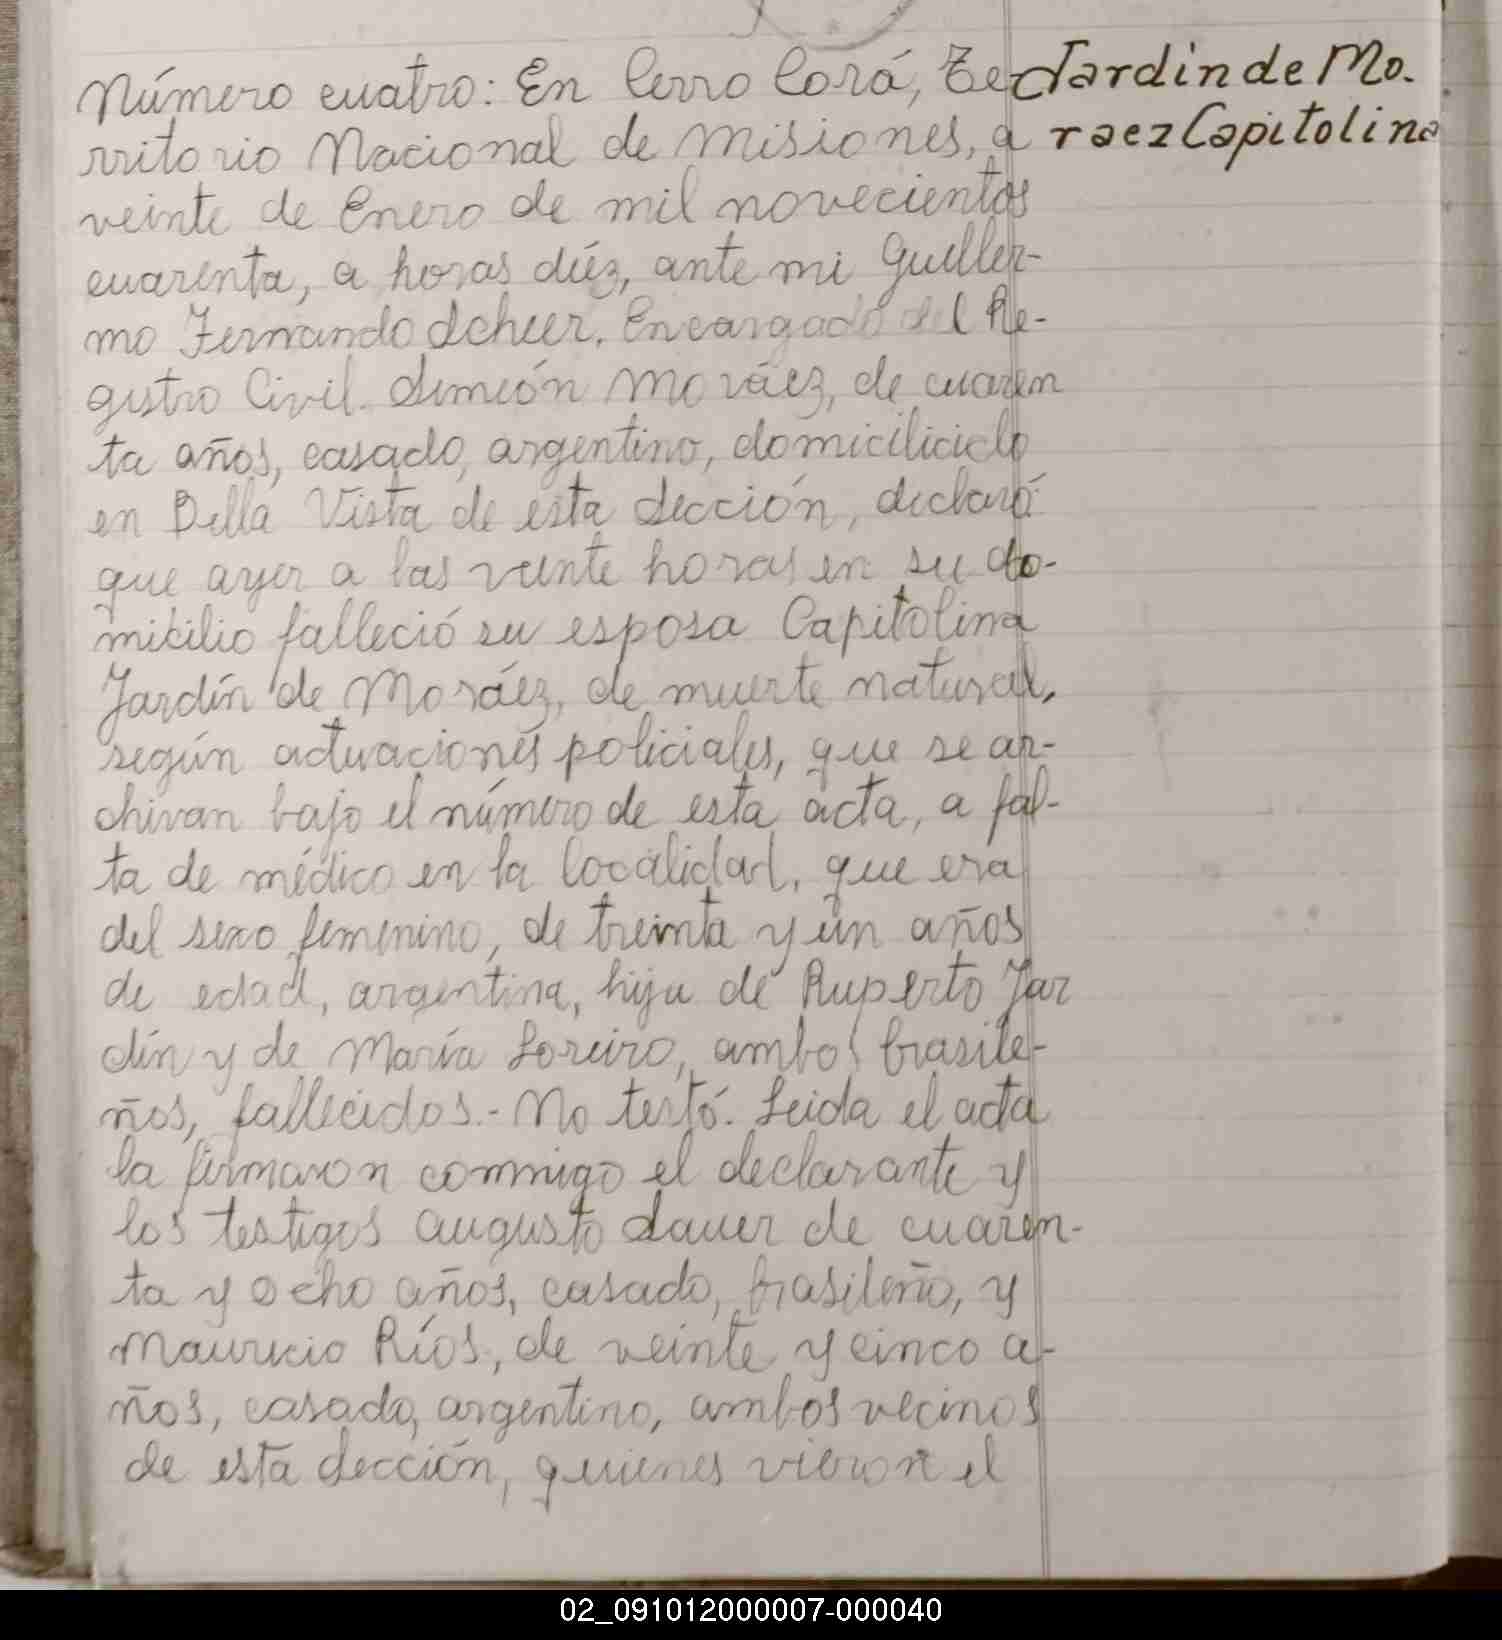 Número cuatro: En Cerro Corá, Te-
rritorio Nacional de Misiones, a
veinte de Enero de mil novecientos
cuarenta, a horas diéz, ante mi Guiller-
mo Fernando Scheer, Encargado del Re-
gistro Civil. Simeón Moráez, de cuaren
ta años, casado, argentino, domiciliado
en Bella Vista de esta Sección, declaró:
que ayer a las veinte horas en su do-
micilio falleció su esposa Capitolina
Jardín de Moráez, de muerte natural,
según actuaciones policiales, que se ar-
chivan bajo el número de esta acta, a fal-
ta de médico en la localidad, que era
del sexo femenino, de treinta y un años
de edad, argentina, hija de Ruperto Jar
dín y de María Loreiro, ambos brasile-
ños, fallecidos.- No testó. Leida el acta
la firmaron conmigo el declarante y
los testigos Augusto Sauer de cuaren-
ta y ocho años, casado, brasileño, y
Mauricio Ríos, de veinte y cinco a-
ños, casado, argentino, ambos vecinos
de esta Sección, quienes vieron el
Jardin de Mo.
raez Capitolina
02_091012000007-000040